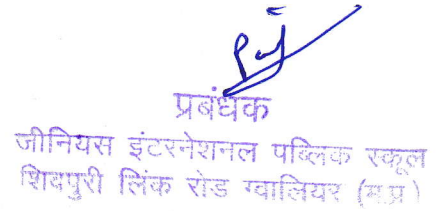 प्रबंधक
जीनियस इंटरनेशनल पब्लिक स्कूल
शिवपुरी लिंक रोड ग्वालियर (म.प्र)